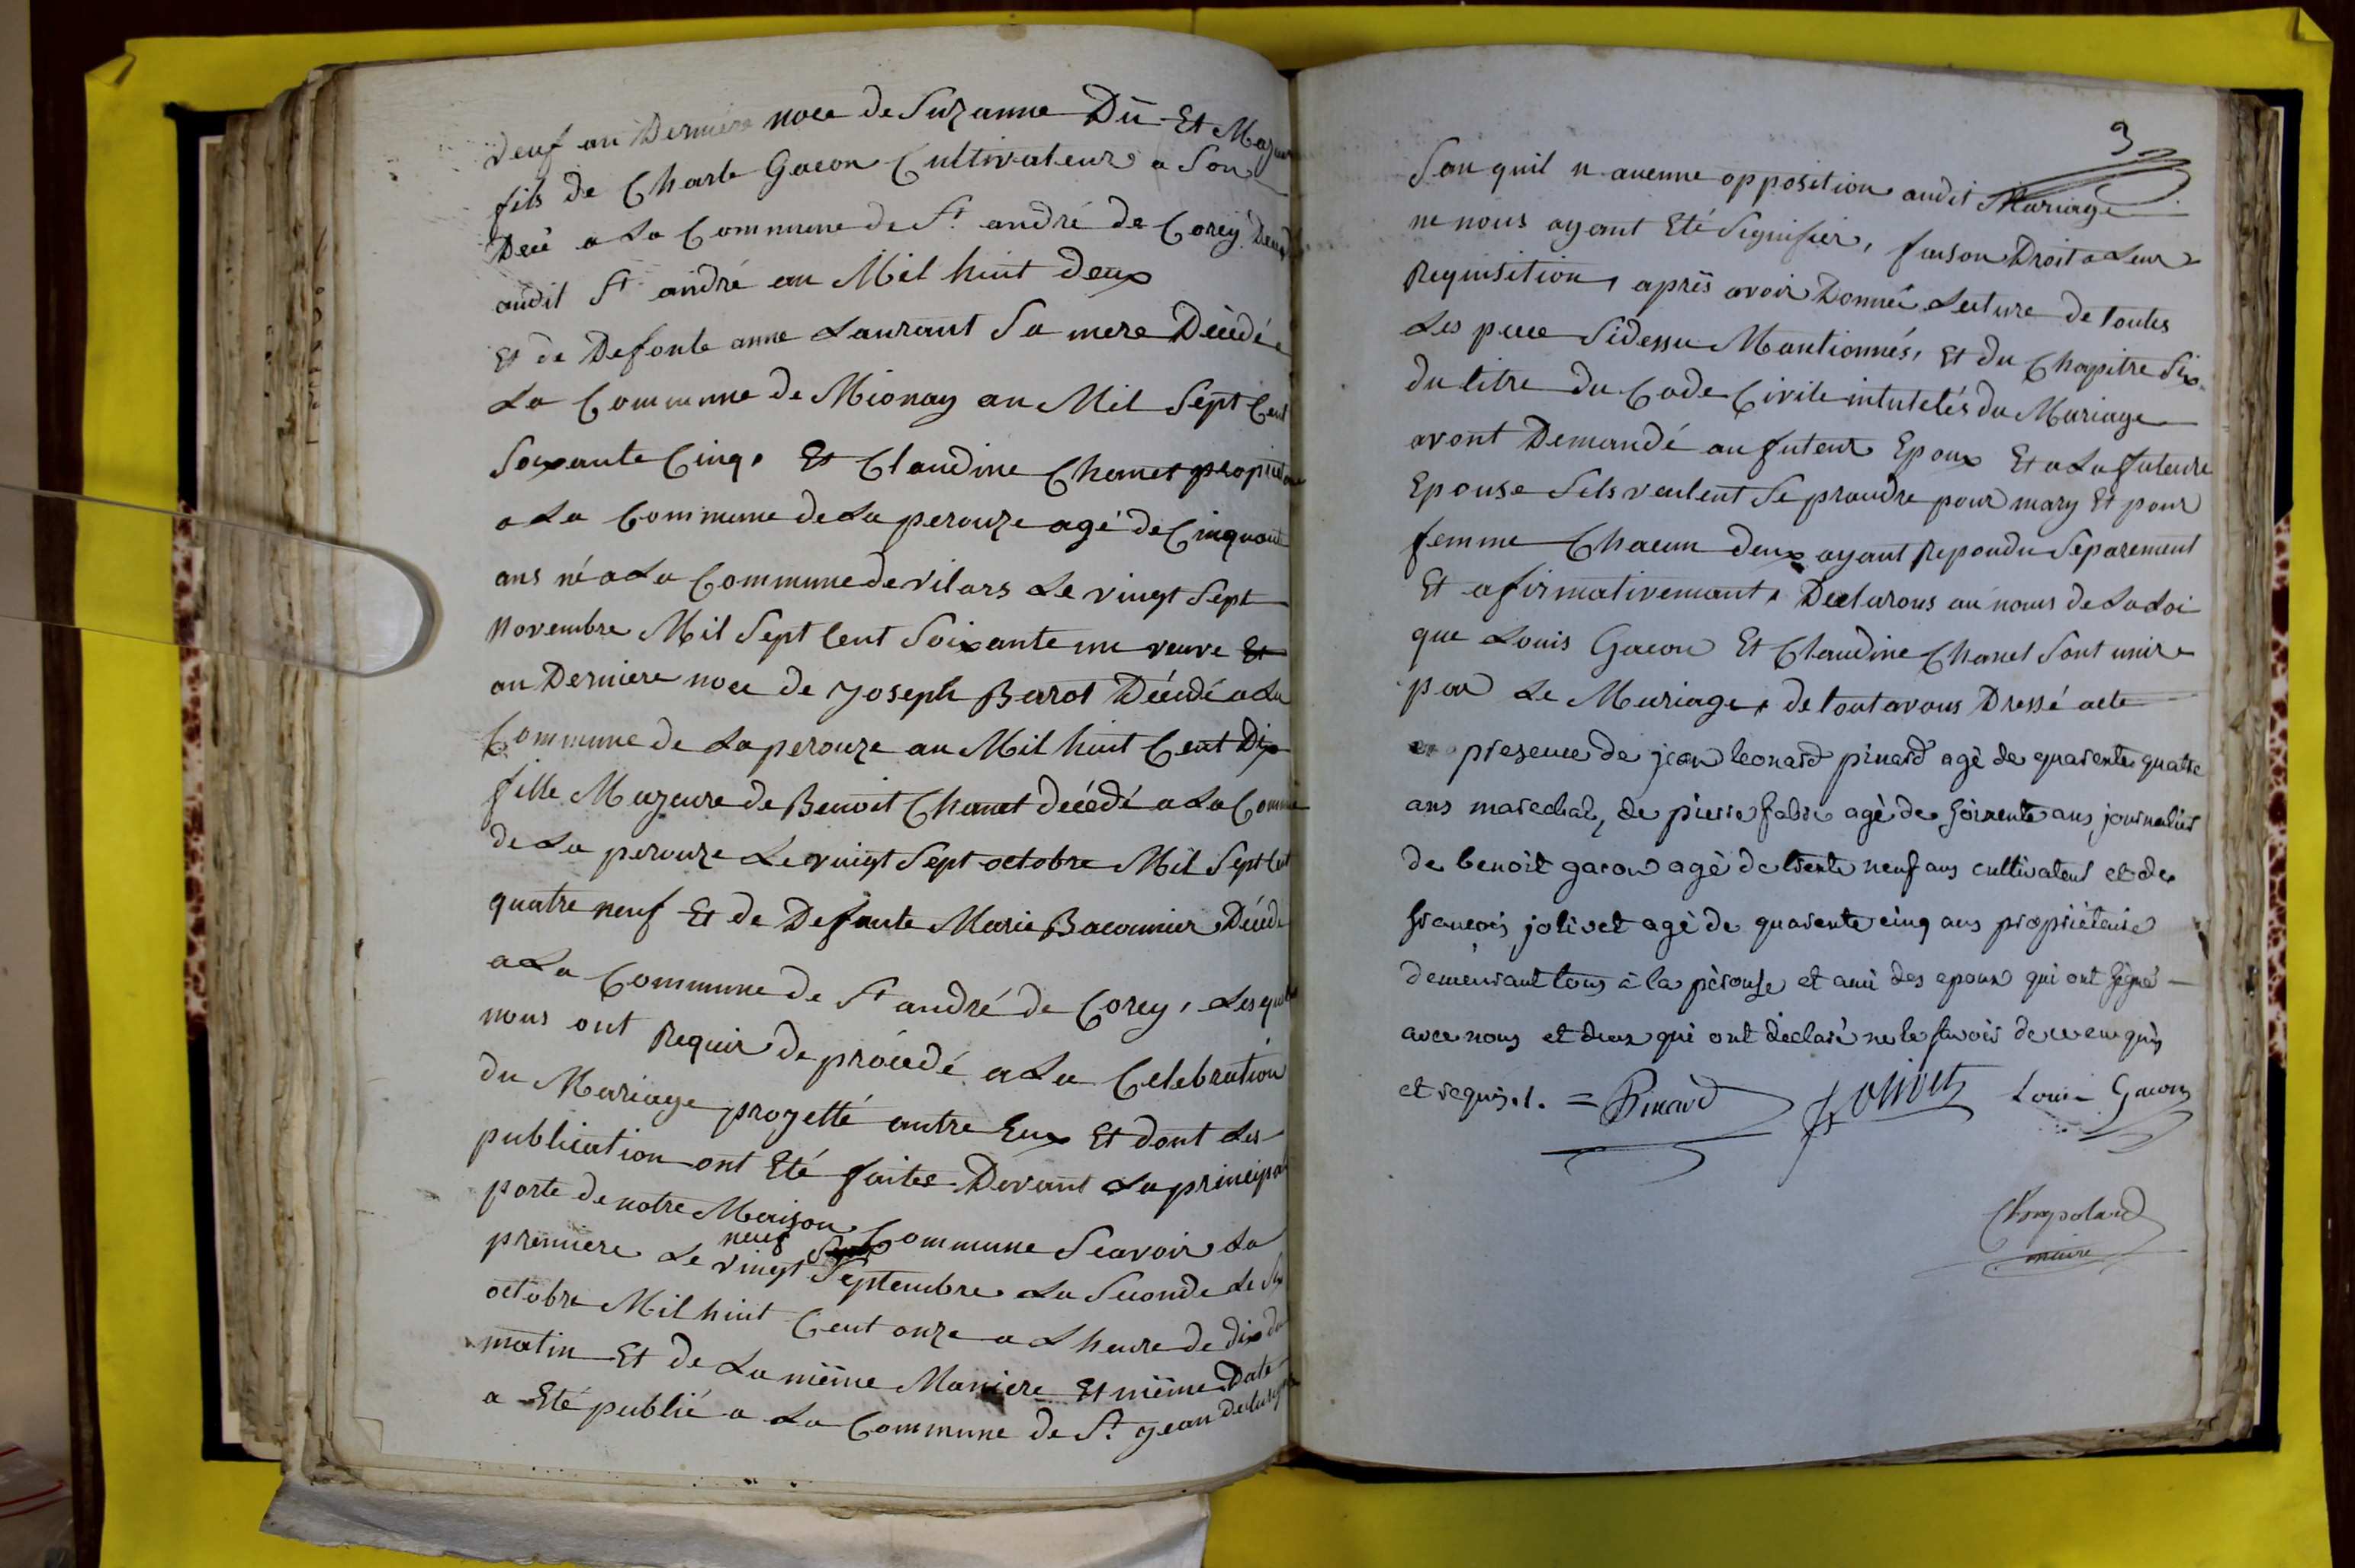 veuf an Derniere noce de Suzanne Dû Et Majeur
fils de Charle Gacon Cultivateur a Son
Decè a la Commune de St. andré de Corcy
audit St andré en Mil huit deux
Et de Defonte anne Laurant Sa mere Décédé
La Commune de Mionay an Mil Sept Cent
Soixante Cinq, Et Claudine Chanet
a La Commune de La perouze agé de Cinquant
ans né a La Commune de vilars Le vingt Sept
Novembre Mil Sept Cent Soixante un veuve Et
an Derniere noce de Joseph Barot Décédé a La
Commune de Laperouze an Mil huit Cent Dix
fille Majeure de Benoit Chanet décédé a La Comune
de La perouze Le vingt Sept octobre Mil Sept Cent
quatre neuf Et de Defunte Marie Baconnier Décédé
a La Commune de St andré de Corcy, Lesquels
nous ont Requir de procédé a La Celebration
du Mariage projetté antre Eux Et dont Les
publication ont Eté faites Devant La principal
porte de notre Maison Commune Scavoir La
neuf
premiere Le vingt Septembre La Seconde Le Six
octobre Mil huit Cent onze a Lheure de dix du
matin Et de La même Maniere Et même Date
a Eté publié a La Commune de St. Jean
3
San quil n aucune opposition audit Mariage
ne nous ayant Eté Signifier, faison Droit a Leur
Requisition, après avoir Donnée Lecture de toutes
Les piece Sidessu Mantionnés, Et du Chapitre Six
du titre du Code Civile intutelés du Mariage
avont Demandé au futeur Epoux Et a La futeure
Epouse Sils veulent Se prandre pour mary Et pour
femme Chacun deux ayant Repondu Séparement
Et afirmativemant, Declarons au nom de La Loi
que Louis Gacon Et Claudine Chanet Sont unire
par Le Mariage, de tout avons Dressé acte
en presence de jean leonard pinard agé de quarente quatre
ans marechal, de pierre fabre agé de soixente ans journalier
de benoit gacon agé de trente neuf ans cultivateur et de
francois jolivet agé de quarente cinq ans propriétaire
demeurant tous à la pérouse et ami des epoux qui ont signé
avec nous et deux qui ont déclaré ne le savoir de ce enquis
et requis.1. = Pinard Jolivet Louis Gacon
Chapolard
maire